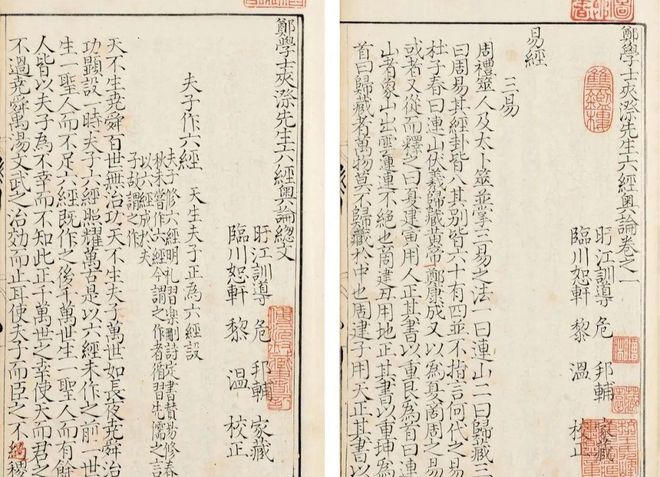 鄭學士夾漈先生六經奧論卷之一
雙鑑樓
盱江訓導 危邦輔 家藏
臨川恕軒 黎溫 校正
易經
三易
周禮簭人及太卜簭並掌三易之法一曰連山二曰歸藏三
曰周易其經卦皆八其別皆六十有四並不指言何代之易
杜子春曰連山伏羲歸藏黃帝鄭康成又以為夏商周之易
或者又從而釋之曰夏建寅用人正其書以重艮為首曰連
山者象山出雲連連不絕也商建丑用地正其書以重坤為
首曰歸藏者萬物莫不歸藏於中也周建子用天正其書以
鄭學士夾漈先生六經奧論總文
盱江訓導 危邦輔 家藏
臨川恕軒 黎溫 校正
夫子作六經 天生夫子正為六經設
夫子修六經明礼習樂刪詩定書贊易修春
秋未嘗作六經今謂之作者循習先儒之言
以六經成於夫
子故謂之作
天不生堯舜百世無治功天不生夫子萬世如長夜堯舜治
功顯設一時夫子六經照耀萬古是以六經未作之前一世
生一聖人而不足六經既作之後千萬世生一聖人而有餘
人皆以夫子為不幸而不知此正千萬世之幸使天而君之
不過堯舜禹湯文武之治効而止耳使夫子而臣之不過稷